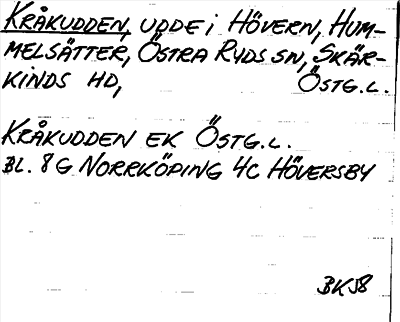 KRÅKUDDEN, UDDE i HÖVERN, HUM-
MELSÄTTER, ÖSTRA RYDS SN, SKÄR-
KINDS HD, ÖSTG.L.
KRÅKUDDEN EK ÖSTG.L.
BL. 8G NORRKÖPING 4C HÖVERSBY
BK58